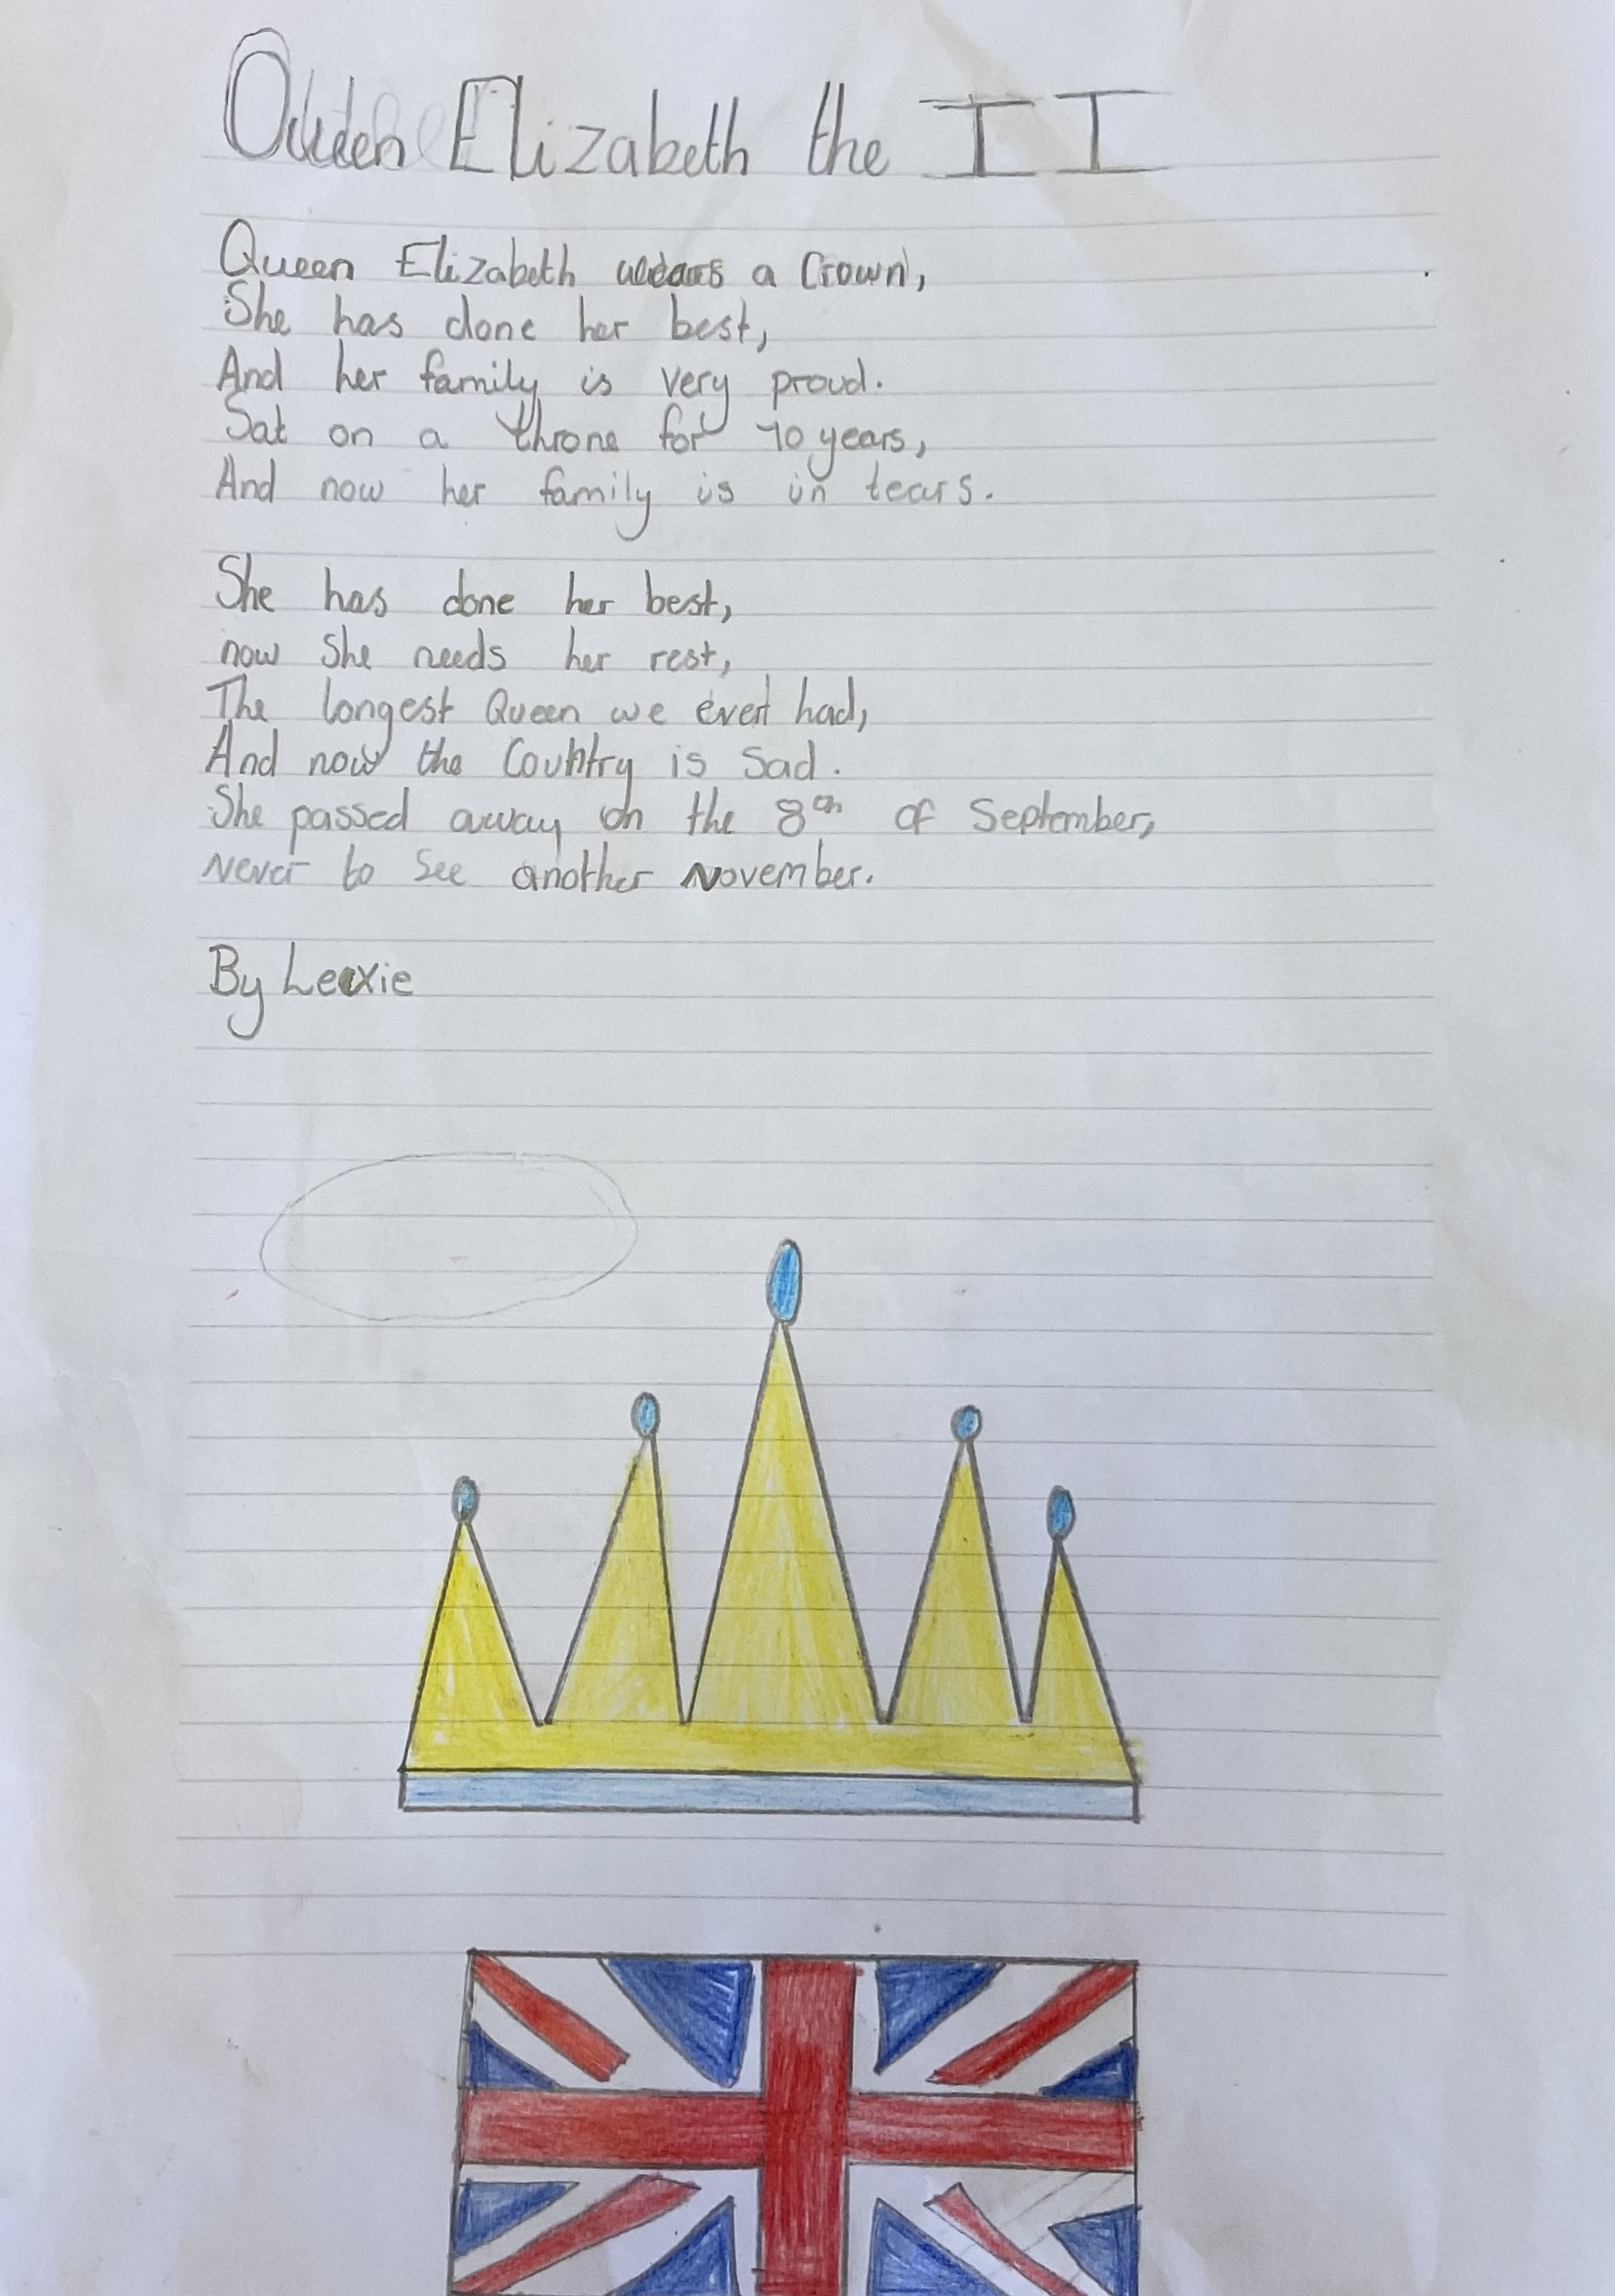 Queen Elizabeth the II
Queen Elizabeth wears a Crown,
She has done her best,
And her family is very proud.
Sat on a throne for 70 years,
And now her family is in tears.
She has done her best,
now she needs her rest,
The longest Queen we ever had,
And now the Country is Sad.
She passed away on the 8th of September,
Never to See another November.
By Lexie